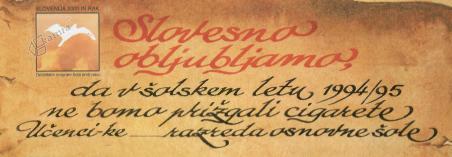 SLOVENIJA 2000 IN RAK
Slovesno
obljubljamo,
da v šolskem letu 1994/95
ne bomo prižgali cigarete
Učenci-ke razreda osnovne šole